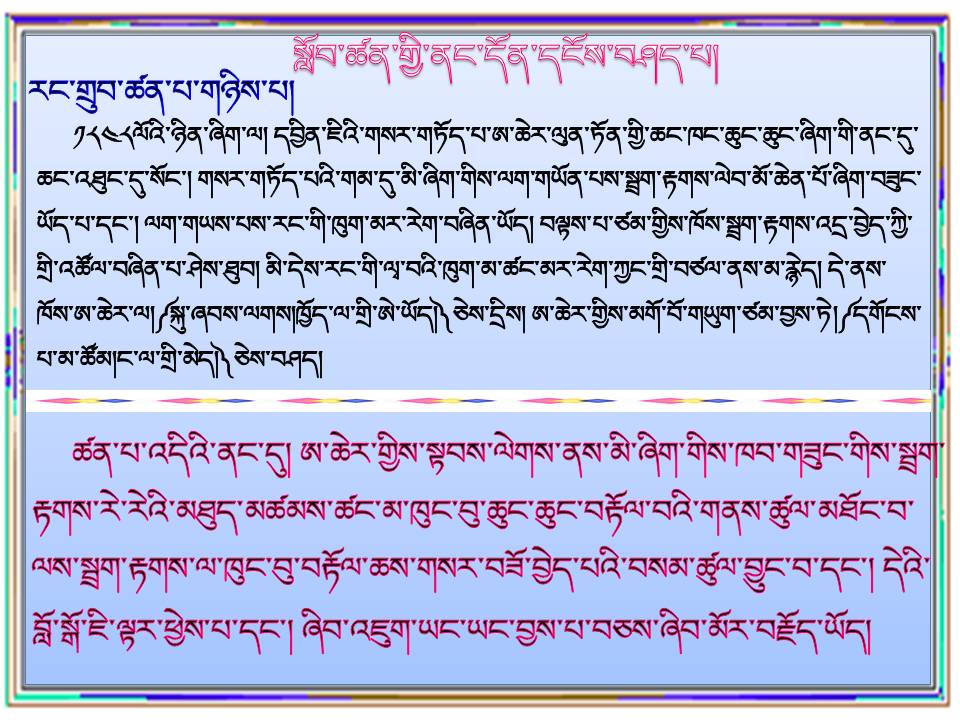 སློབ་ཚན་གྱི་ནང་དོན་དངོས་བཤད་པ།
རང་གྲུབ་ཚན་པ་གཉིས་པ།
༡༨༤༨ལོའི་ཉིན་ཞིག་ལ། དབྱིན་ཇིའི་གསར་གཏོད་པ་ཨ་ཆེར་ལུན་ཏོན་གྱི་ཆང་ཁང་ཆུང་ཆུང་ཞིག་གི་ནང་དུ་
ཆང་འཐུང་དུ་སོང་། གསར་གཏོད་པའི་གམ་དུ་མི་ཞིག་གིས་ལག་གཡོན་པས་སྦྲག་རྟགས་ལེབ་མོ་ཆེན་པོ་ཞིག་བཟུང་
ཡོད་པ་དང་། ལག་གཡས་པས་རང་གི་ཁུག་མར་རེག་བཞིན་ཡོད། བལྟས་པ་ཙམ་གྱིས་ཁོས་སྦྲག་རྟགས་འདྲ་བྱེད་ཀྱི་
གྲི་འཚོལ་བཞིན་པ་ཤེས་ཐུབ། མི་དེས་རང་གི་ལྭ་བའི་ཁུག་མ་ཚང་མར་རེག་ཀྱང་གྲི་བཙལ་ནས་མ་རྙེད། དེ་ནས་
ཁོས་ཨ་ཆེར་ལ།༼སྐུ་ཞབས་ལགས།ཁྱོད་ལ་གྲི་ཨེ་ཡོད།༽ཅེས་དྲིས། ཨ་ཆེར་གྱིས་མགོ་བོ་གཡུག་ཙམ་བྱས་ཏེ།༼དགོངས་
པ་མ་ཚོམ།ང་ལ་གྲི་མེད།༽ཅེས་བཤད།
ཚན་པ་འདིའི་ནང་དུ། ཨ་ཆེར་གྱིས་སྟབས་ལེགས་ནས་མི་ཞིག་གིས་ཁབ་གཟུང་གིས་སྦྲག་
རྟགས་རེ་རེའི་མཐུད་མཚམས་ཚང་མ་ཁུང་བུ་ཆུང་ཆུང་བརྟོལ་བའི་གནས་ཚུལ་མཐོང་བ་
ལས་སྦྲག་རྟགས་ལ་ཁུང་བུ་བརྟོལ་ཆས་གསར་བཟོ་བྱེད་པའི་བསམ་ཚུལ་བྱུང་བ་དང་། དེའི་
བློ་སྒོ་ཇི་ལྟར་ཕྱེས་པ་དང་། ཞིབ་འཇུག་ཡང་ཡང་བྱས་པ་བཅས་ཞིབ་མོར་བརྗོད་ཡོད།